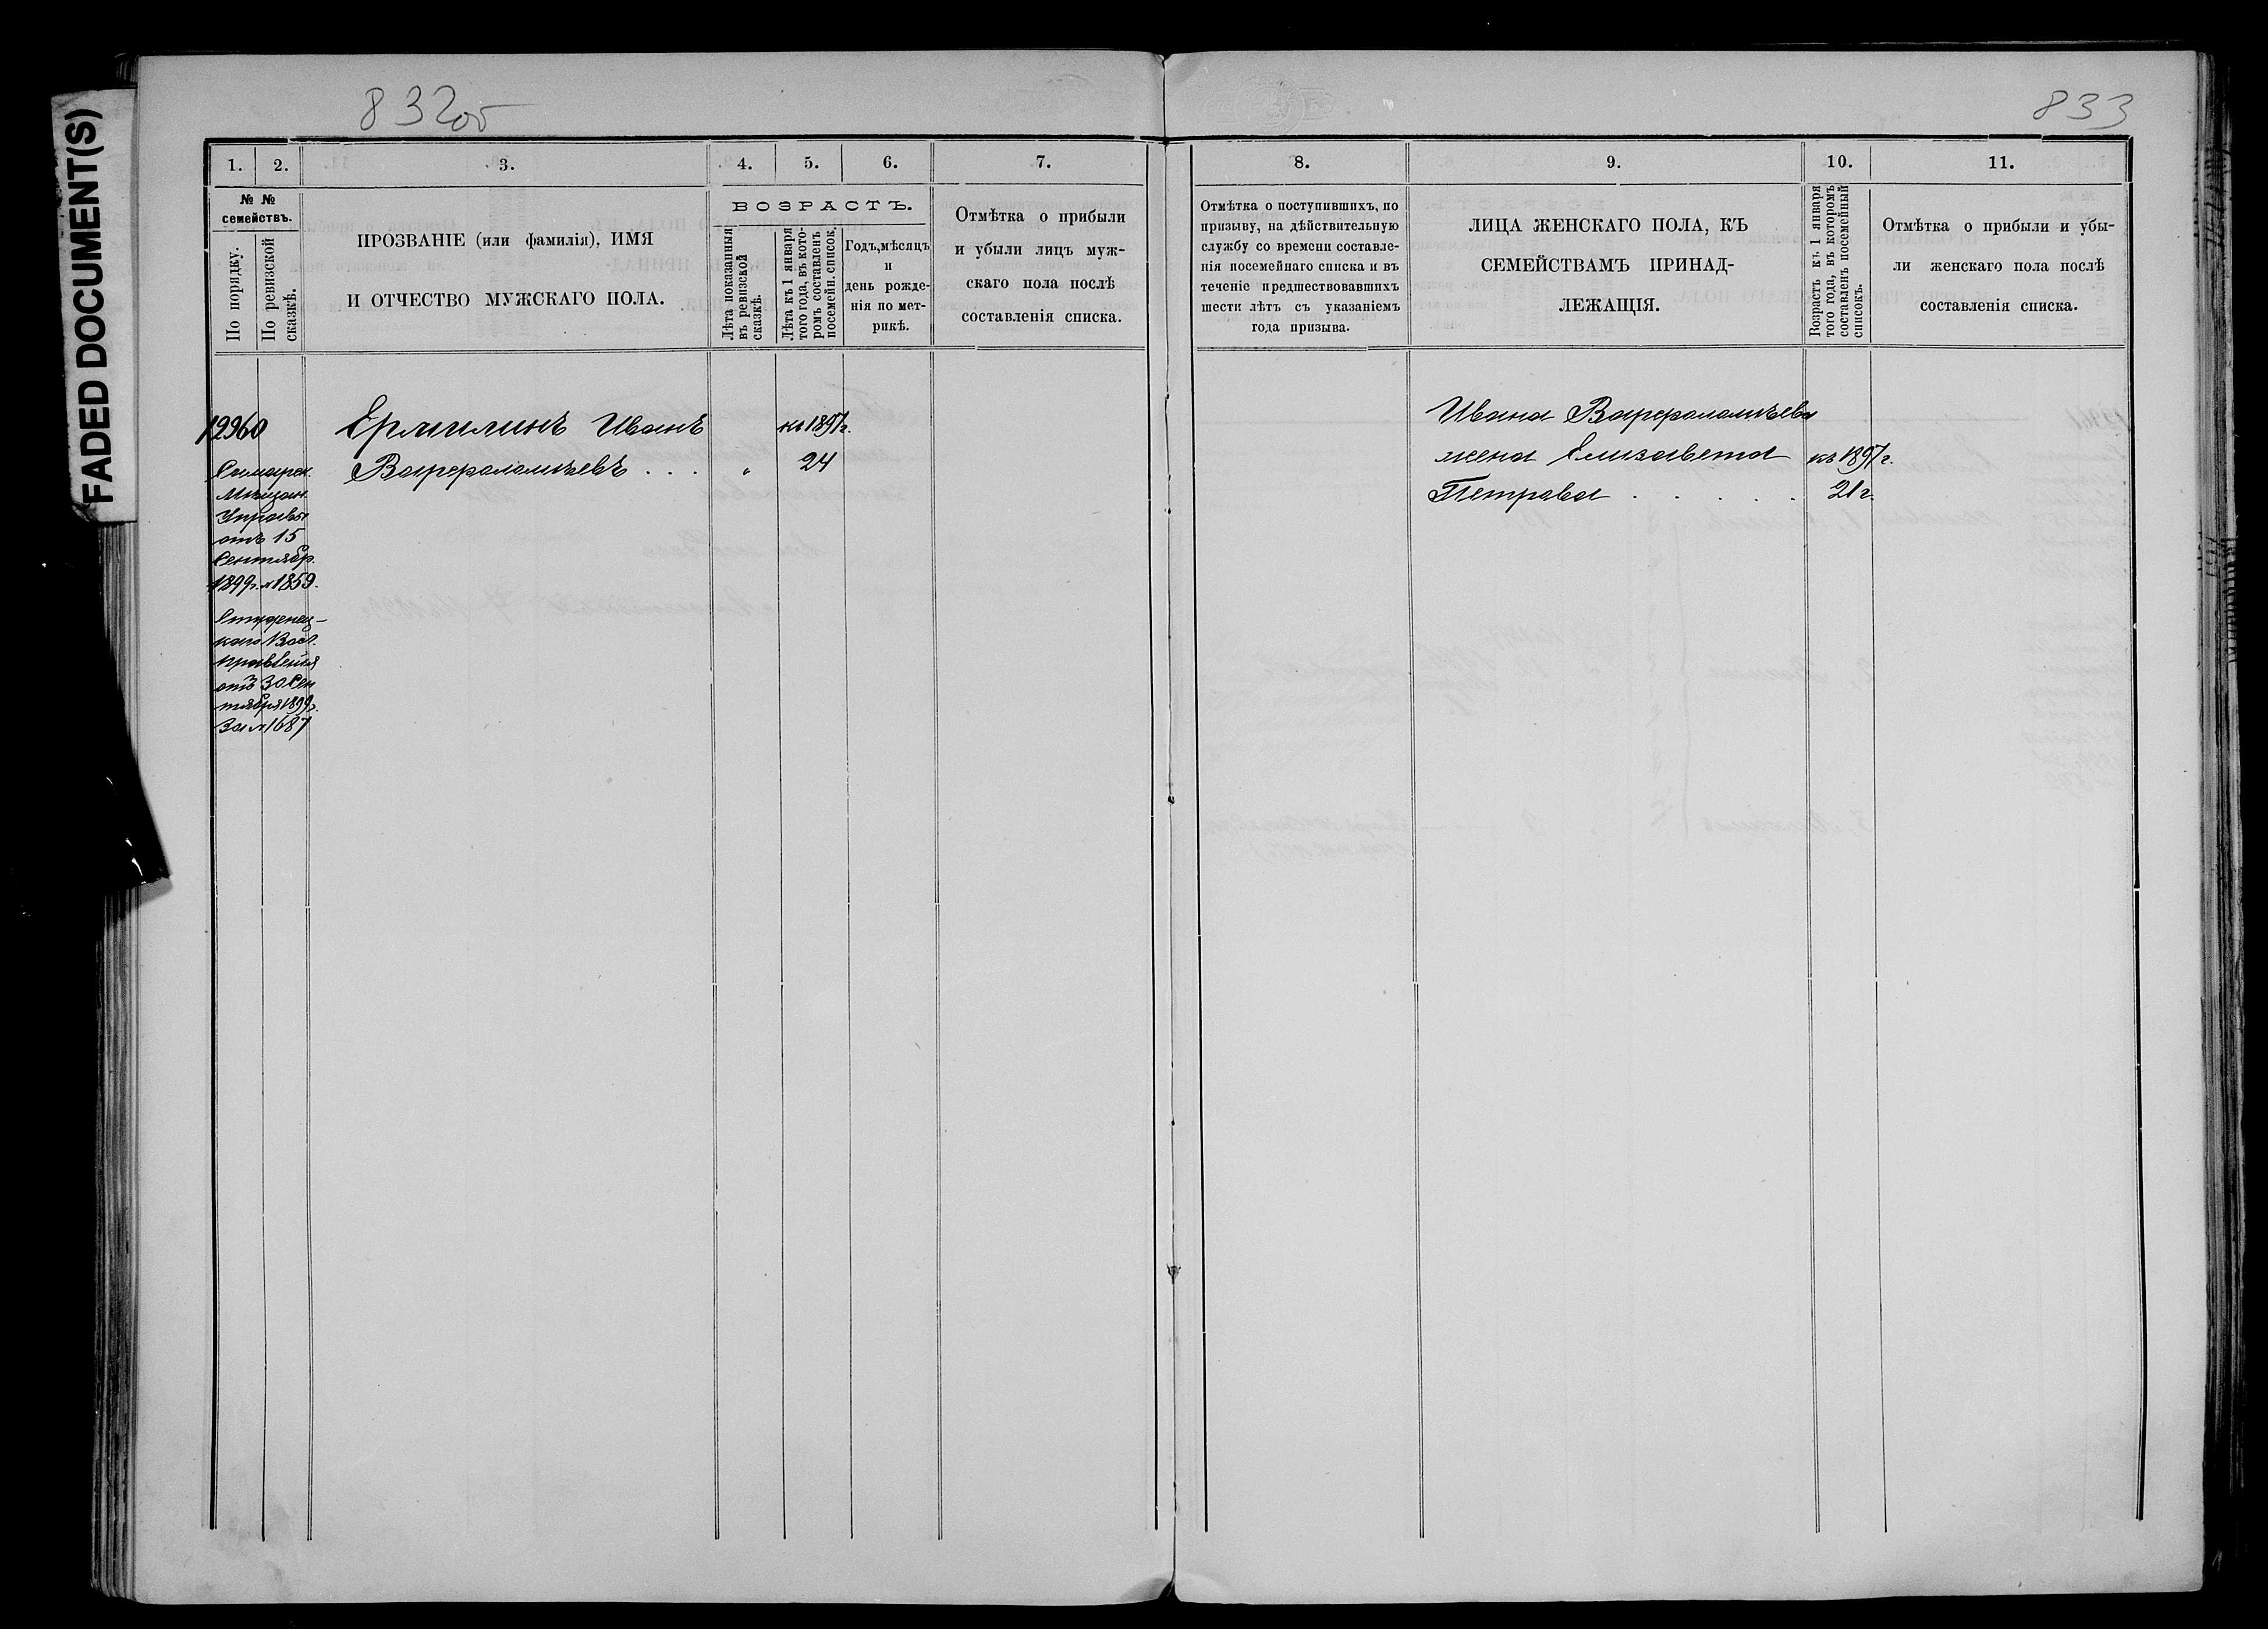 FADED DOCUMENT(S)
832об
833
1. 2. 3. 4. 5. 6. 7.
№ №
семействъ.
По порядку.
По ревизской
сказкѣ.
ПРОЗВАНІЕ (или фамилія), ИМЯ
И ОТЧЕСТВО МУЖСКАГО ПОЛА.
ВОЗРАСТЪ.
Лѣта показанныя
въ ревизской
сказкѣ.
Лѣта къ 1 января
того года, въ кото-
ромъ составленъ
посемейн. список,
Годъ, мѣсяцъ
и
день рожде-
нія по мет-
рикѣ.
Отмѣтка о прибыли
и убыли лицъ муж-
скаго пола послѣ
составленія списка.
12960
Самарск.
Мѣщан.
Управы
отъ 15
Сентябр.
1899г. № 1859.
кого Вол.
правленія
отъ 30 Сен
тября 1899г.
За № 1687
Ермилинъ Иванъ
Варфоломѣевъ . . . "
къ 1897г.
24
8. 9. 10. 11.
Отмѣтка о поступившихъ, по
призыву, на дѣйствительную
службу со времени составле-
нія посемейнаго списка и въ
теченіе предшествовавшихъ
шести лѣтъ съ указаніемъ
года призыва.
ЛИЦА ЖЕНСКАГО ПОЛА, КЪ
СЕМЕЙСТВАМЪ ПРИНАД-
ЛЕЖАЩІЯ.
Возрастъ къ 1 января
того года, въ которомъ
составленъ посемейный
списокъ.
Отмѣтка о прибыли и убы-
ли женскаго пола послѣ
составленія списка.
Ивана Варфоломѣева
жена Елизавета
Петрова . . . . .
къ 1897г.
21г.